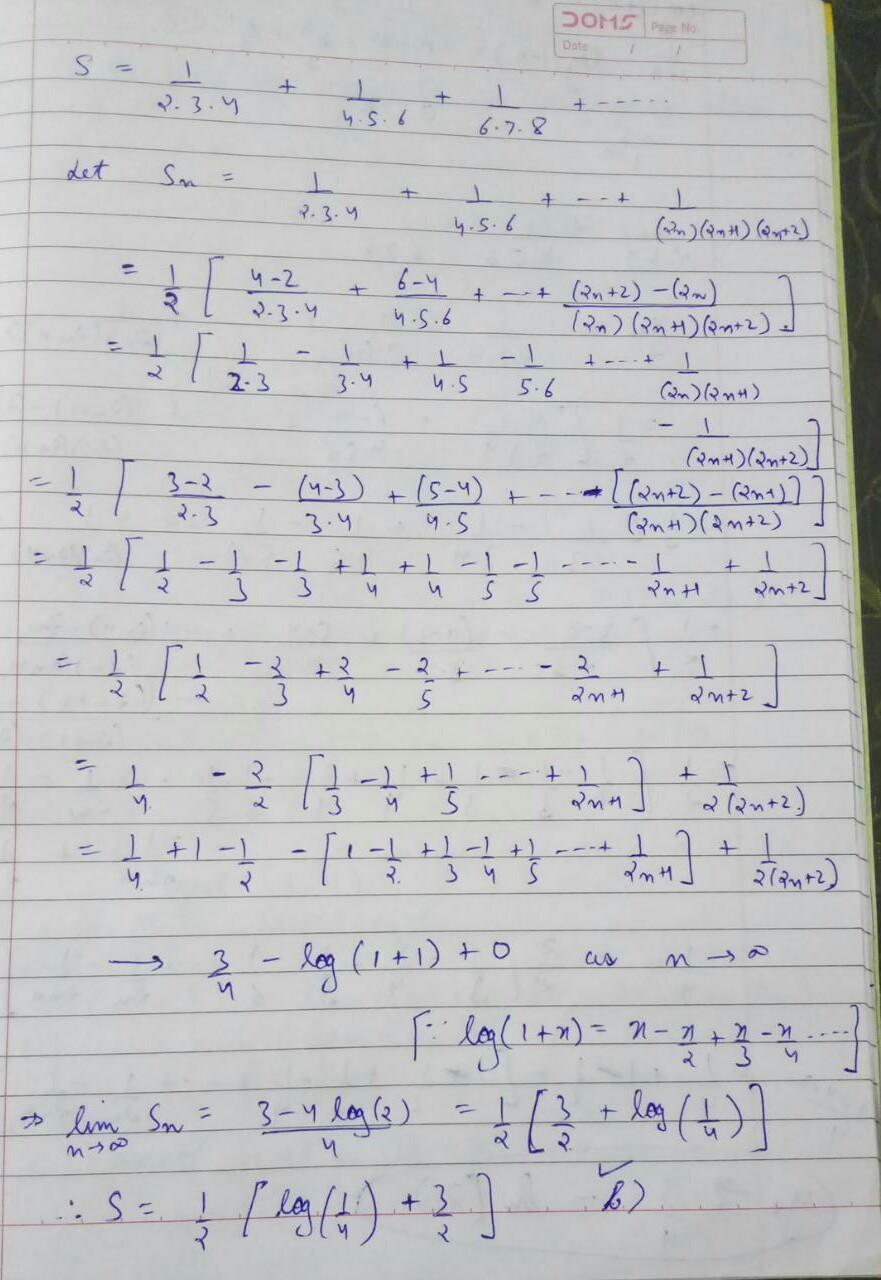 DOMS Page No.
Date / /
S = 1/(2·3·4) + 1/(4·5·6) + 1/(6·7·8) + -----
Let Sn = 1/(2·3·4) + 1/(4·5·6) + --- + 1/((2n)(2n+1)(2n+2))
= 1/2 [ (4-2)/(2·3·4) + (6-4)/(4·5·6) + --- + ((2n+2)-(2n))/((2n)(2n+1)(2n+2)) ]
= 1/2 [ 1/(2·3) - 1/(3·4) + 1/(4·5) - 1/(5·6) + --- + 1/((2n)(2n+1))
- 1/((2n+1)(2n+2)) ]
= 1/2 [ (3-2)/(2·3) - (4-3)/(3·4) + (5-4)/(4·5) + --- - [(2n+2)-(2n+1)]/((2n+1)(2n+2)) ]
= 1/2 [ 1/2 - 1/3 - 1/3 + 1/4 + 1/4 - 1/5 - 1/5 ----- - 1/(2n+1) + 1/(2n+2) ]
= 1/2 [ 1/2 - 2/3 + 2/4 - 2/5 + ---- - 2/(2n+1) + 1/(2n+2) ]
= 1/4 - 2/2 [ 1/3 - 1/4 + 1/5 ---- + 1/(2n+1) ] + 1/(2(2n+2))
= 1/4 + 1 - 1/2 - [ 1 - 1/2 + 1/3 - 1/4 + 1/5 ---- + 1/(2n+1) ] + 1/(2(2n+2))
→ 3/4 - log(1+1) + 0 as n → ∞
[∵ log(1+x) = x - x/2 + x/3 - x/4 ----]
⇒ lim n→∞ Sn = (3-4 log(2))/4 = 1/2 [ 3/2 + log(1/4) ]
∴ S = 1/2 [ log(1/4) + 3/2 ] ✓ b)